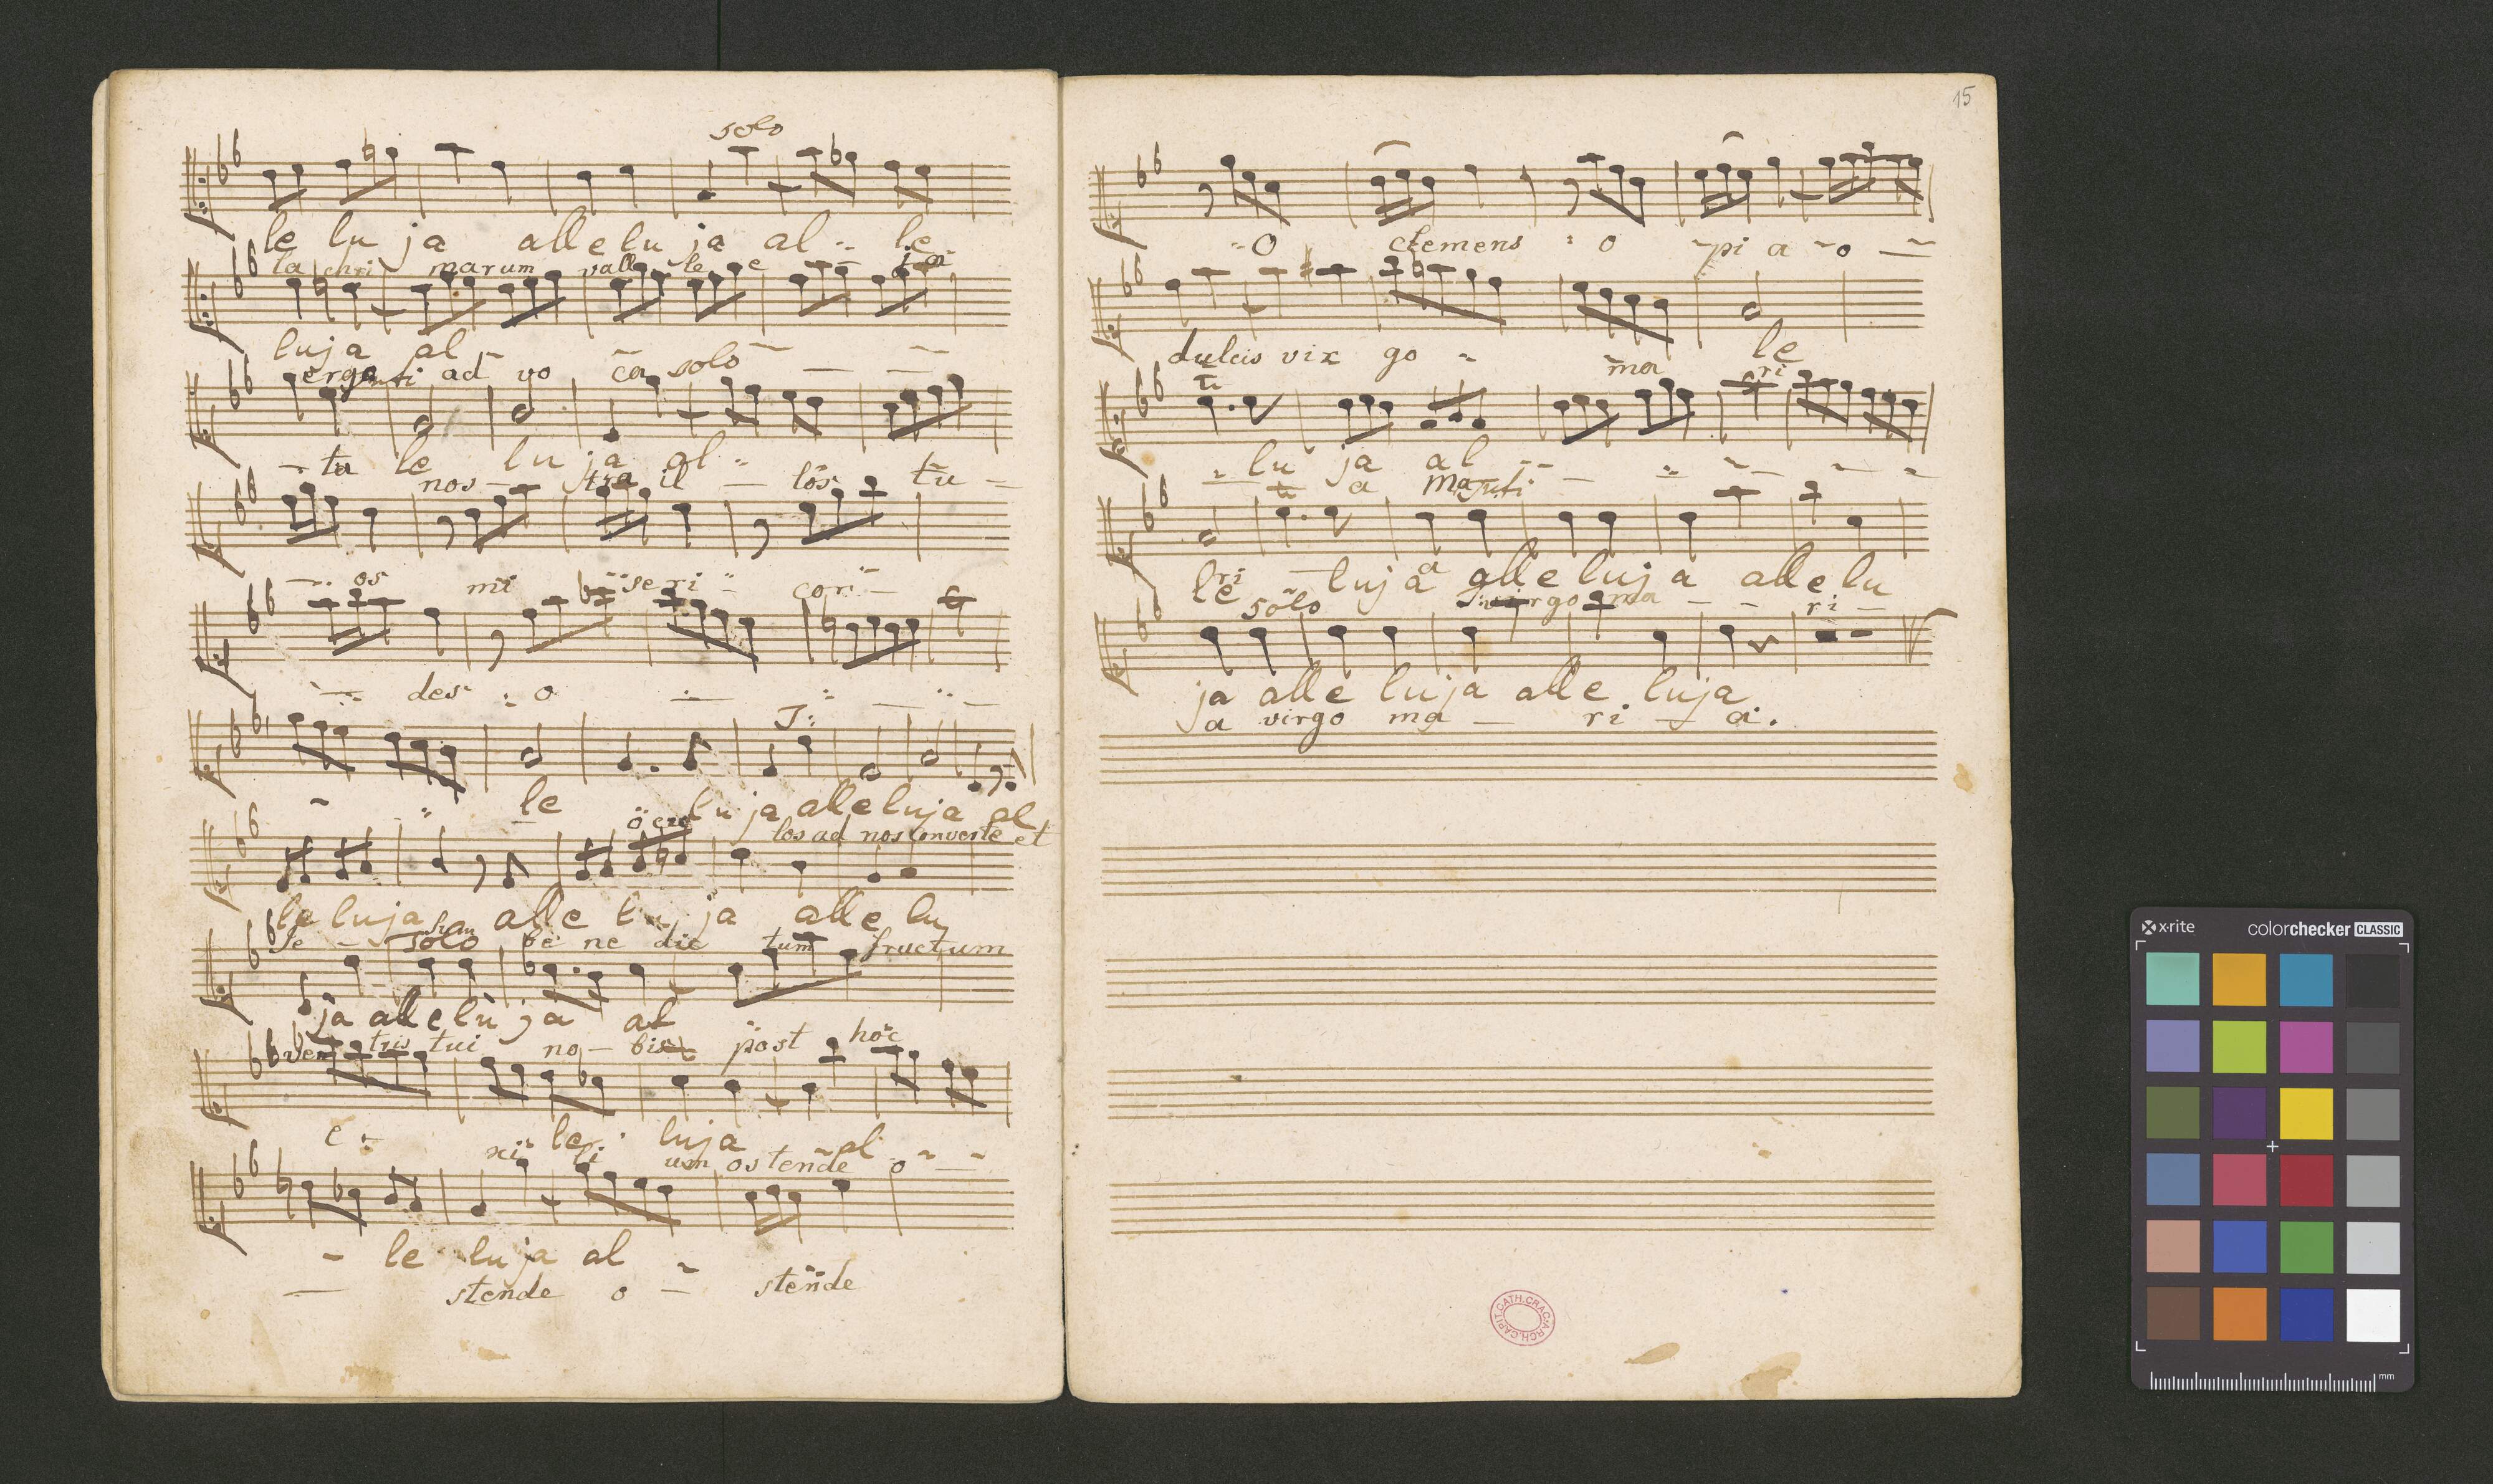 solo
le lu ja alleluja al le
la chri marum valle le e
luja al
ergo ad vo ca solo
tu le lu ja al
nos tra il los tu
os mi seri cor
des o
le lu ja alleluja al
los ad nos converte et
le luja alle lu ja alle lu
solo be ne dic tum fructum
ja alleluja al
ven tris tui no bis post hoc
le luja al
xi li um ostende o
le luja al
stende o stende
15
O clemens o pi a o
dulcis vir go ma le
ri
lu ja al
a ma
le luja alleluja allelu
ri a
solo virgo ma ri
ja alle luja alle luja
a virgo ma ri a.
ARCH.CAPIT.CATH.CRAC.
x·rite colorchecker CLASSIC
mm